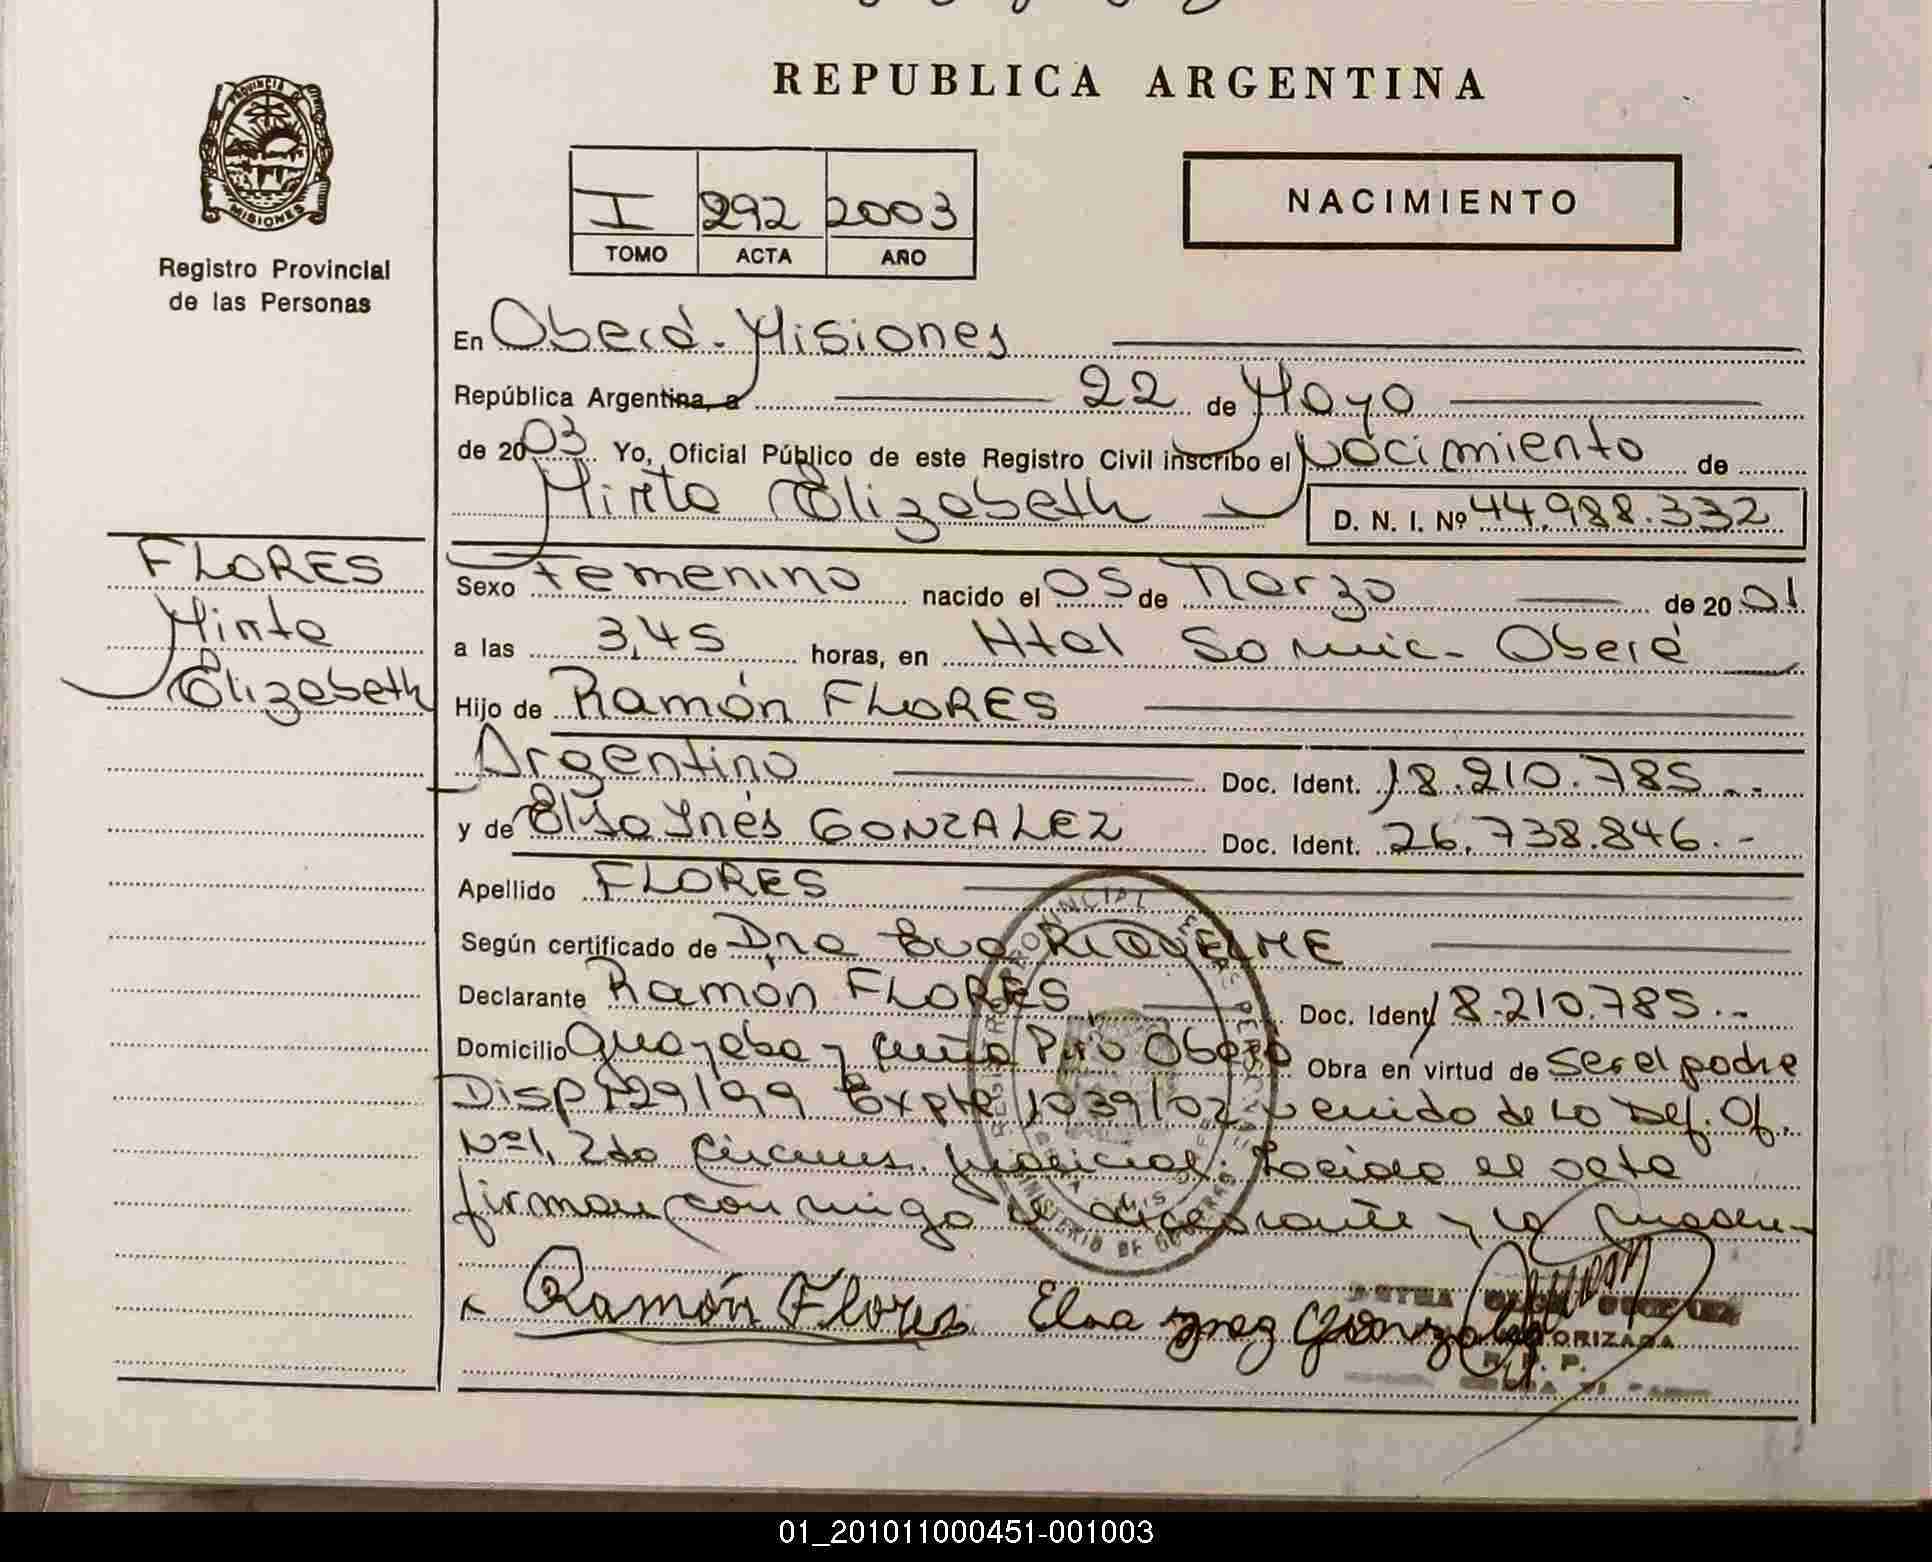 REPUBLICA ARGENTINA
PROVINCIA DE
MISIONES
Registro Provincial
de las Personas
I 292 2003
TOMO ACTA AÑO
NACIMIENTO
En Oberá - Misiones
República Argentina, a 22 de Mayo
de 2003 Yo, Oficial Público de este Registro Civil inscribo el Nacimiento de
Mirta Elizabeth
D. N. I. Nº 44.988.332
FLORES
Mirta
Elizabeth
Sexo Femenino nacido el 05 de Marzo de 2001
a las 3,45 horas, en Htal Samic - Oberá
Hijo de Ramón FLORES
Argentino Doc. Ident. 18.210.785.-
y de Elsa Inés GONZALEZ Doc. Ident. 26.738.846.-
Apellido FLORES
Según certificado de Dra Eva RIQUELME
Declarante Ramón FLORES Doc. Ident. 18.210.785.-
Domicilio Guayaba y Oberá Obra en virtud de Ser el padre
Disp 129/99 Expte 1039/02 venido de la Def. Of.
Nº1, 2da Circuns. Judicial. Leída el acta
firman conmigo el declarante y la madre-
Ramón Flores Elsa Ynez Gonzalez
AUTORIZADA
R. P. P.
01_201011000451-001003